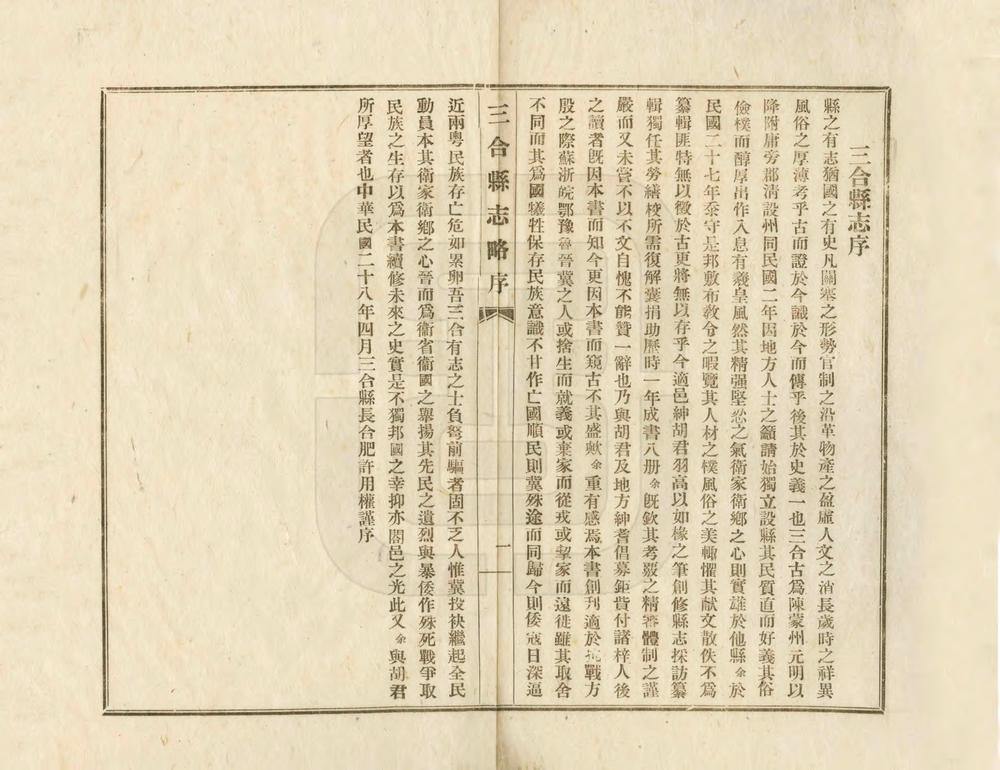 三合縣志序
縣之有志猶國之有史凡關塞之形勢官制之沿革物產之盈虛人文之消長歲時之祥異
風俗之厚薄考乎古而證於今識於今而傳乎後其於史義一也三合古爲陳蒙州元明以
降附庸旁郡清設州同民國二年因地方人士之籲請始獨立設縣其民質直而好義其俗
儉樸而醇厚出作入息有羲皇風然其精强堅忍之氣衛家衛鄉之心則實雄於他縣余於
民國二十七年忝守是邦敷布教令之暇覽其人材之樸風俗之美輒懼其献文散佚不爲
纂輯匪特無以徵於古更將無以存乎今適邑紳胡君羽高以如椽之筆創修縣志採訪纂
輯獨任其勞繕校所需復解囊捐助歷時一年成書八册余既欽其考覈之精審體制之謹
嚴而又未嘗不以不文自愧不能贊一辭也乃與胡君及地方紳耆倡募鉅貲付諸梓人後
之讀者既因本書而知今更因本書而窺古不其盛歟余重有感焉本書創刋適於抗戰方
殷之際蘇浙皖鄂豫魯晉冀之人或捨生而就義或棄家而從戎或挈家而遠徙雖其取舍
不同而其爲國犧牲保存民族意識不甘作亡國順民則冀殊途而同歸今則倭寇日深逼
三合縣志略序
一
近兩粤民族存亡危如累卵吾三合有志之士負弩前驅者固不乏人惟冀投袂繼起全民
動員本其衛家衛鄉之心晉而爲衞省衞國之舉揚其先民之遺烈與暴倭作殊死戰爭取
民族之生存以爲本書續修未來之史實是不獨邦國之幸抑亦闔邑之光此又余與胡君
所厚望者也中華民國二十八年四月三合縣長合肥許用權謹序